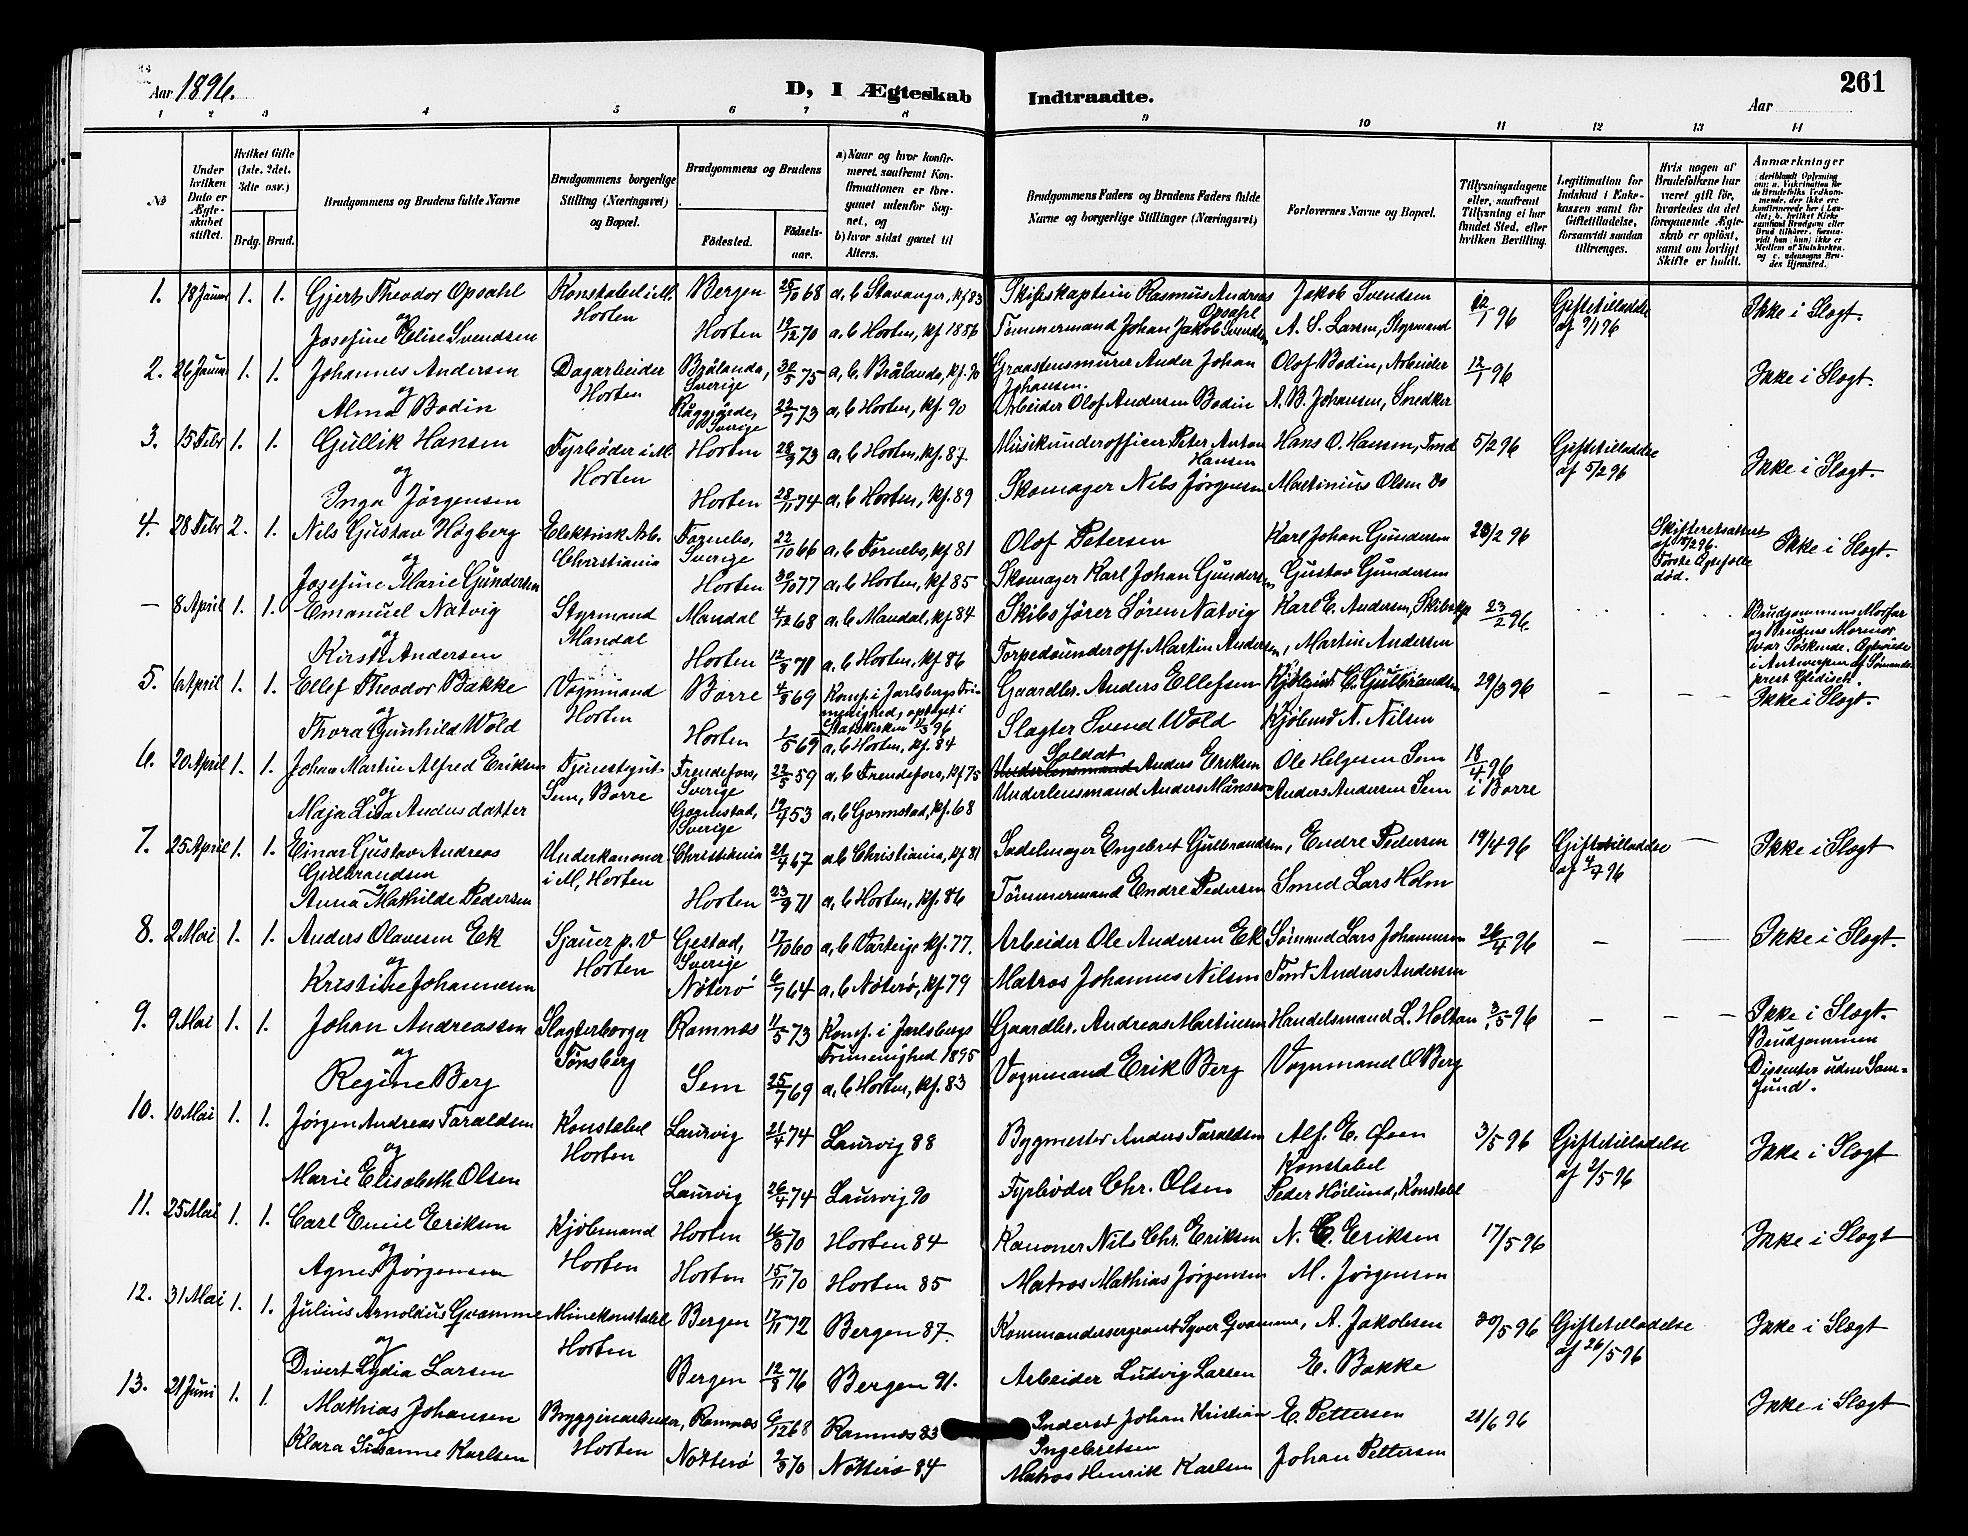 Aar 1896.
D, I Ægteskab Indtraadte.
261
Aar
1 2 3 4 5 6 7 8 9 10 11 12 13 14
No
Under hvilken Dato er Ægteskabet stiftet.
Hvilket Gifte (1ste, 2det, 3die osv.)
Brdg. Brud.
Brudgommens og Brudens fulde Navne
Brudgommens borgerlige Stilling (Næringsvei) og Bopæl.
Brudgommens og Brudens
Fødested. Fødselsaar.
a) Naar og hvor konfirmeret, saafremt Konfirmationen er foregaaet udenfor Sognet, og
b) hvor sidst gaaet til Alters.
Brudgommens Faders og Brudens Faders fulde Navne og borgerlige Stillinger (Næringsvei)
Forlovernes Navne og Bopæl.
Tillysningsdagene eller, saafremt Tillysning ei har fundet Sted, efter hvilken Bevilling.
Legitimation for Indskud i Enkekassen samt for Giftetilladelse, forsaavidt saadan tiltrænges.
Hvis nogen af Brudefolkene har været gift før, hvorledes da det foregaaende Ægteskab er opløst, samt om lovligt Skifte er holdt.
Anmærkninger
1. 18 Januar 1. 1. Gjert Theodor Opsahl Konstabel i M. Bergen 25/10 68 a, b Stavanger, kf 83 Skibskaptein Rasmus Andreas Opsahl Jakob Svendsen 12/1 96 Giftetilladelse af 9/1 96 Ikke i Slægt.
og Horten
Josefine Elise Svendsen Horten 19/12 70 a, b Horten, kf 1886 Tømmermand Johan Jakob Svendsen A. S. Larsen, Styrmand
2. 26 Januar 1. 1. Johannes Andersen Dagarbeider Brålanda, Sverige 30/5 75 a, b. Brålanda, kf. 90 Graastensmurer Ander Johan Johansen. Olof Bodin, Arbeider 12/1 96 Ikke i Slægt.
og Horten
Alma Bodin Sverige 22/7 73 a, b Horten, kf. 90 Arbeider Olof Andersen Bodin A. B. Johansen, Snedker
3. 15 Febr 1. 1. Gullik Hansen Fyrbøder i M. Horten 28/9 73 a, b Horten, kf. 87 Musikunderofficer Peter Anton Hansen Hans O. Hansen, Tmd 5/2 96 Giftetilladelse af 5/2 96 Ikke i Slægt.
og Horten
Inga Jørgensen Horten 28/11 74 a, b Horten, kf. 89 Skomager Nils Jørgensen Martinius Olsen do
4. 28 Febr 2. 1. Nils Gustav Högberg Elektrisk Arb. Fornebo, Sverige 22/10 66 a, b Fornebo, kf 81 Olof Petersen Karl Johan Gundersen 23/2 96 Skifteretsattest Første Ægtefælle død. Ikke i Slægt.
og Christiania
Josefine Marie Gundersen Horten 30/10 77 a, b Horten, kf 85 Skomager Karl Johan Gundersen Gustav Gundersen
— 8 April 1. 1. Emanuel Natvig Styrmand Mandal 4/12 68 a, b Mandal, kf 84 Skibsfører Søren Natvig Karl E. Andersen, Skibskp 23/2 96. Brudgommens Morfar og Brudens Mormor var Søskende. Ægteviede i Antwerpen af Sømandsprest Glidisch.
og Mandal
Kirsti Andersen Horten 12/8 71 a, b Horten, kf 86 Torpedounderoff. Martin Andersen, Martin Andersen
5. 6 April 1. 1. Ellef Theodor Bakke Vognmand Borre 4/8 69 Konf. i Jarlsbergs Frimenighed, optaget i Statskirken 96 Gaardbr. Anders Ellefsen Kjøbmd C. Gulbrandsen 29/3 96 — — — Ikke i Slægt.
og Horten
Thora Gunhild Wold Horten 1/5 65 a, b Horten, kf. 84 Slagter Svend Wold Kjøbmd N. Nilsen
6. 20 April 1. 1. Johan Martin Alfred Eriksen Tjenestegut Frendefors, Sverige 22/5 59 a, b Frendefors, kf 75 Soldat Anders Eriksen Ole Helgesen Sem 18/4 96 i Borre
og Sem, Borre
Maja Lisa Andersdatter Sverige 19/4 53 kf. 68 Underlensmand Anders Månsson Anders Andersen Sem
7. 25 April 1. 1. Einar Gustav Andreas Gulbrandsen Underkanoner i M, Horten Christiania 21/7 67 a b Christiania, kf 81 Sadelmager Engebret Gulbrandsen, Endre Pedersen 19/4 96 Giftetilladelse af 4/4 96 — Ikke i Slægt
Anna Mathilde Pedersen Horten 23/9 71 a, b Horten, kf. 86 Tømmermand Endre Pedersen Smed Lars Holm
8. 2 Mai 1. 1. Anders Olavesen Ek Sjauer p. V Gestad, Sverige 17/10 60 a, b Varteig kf. 77. Arbeider Ole Andersen Ek Sømand Lars Johannesen 26/4 96 — — Ikke i Slægt.
og Horten
Kristine Johannesen Nøterø 6/7 64 a, b Nøterø, kf. 79 Matros Johannes Nilsen Tmd Anders Andersen
9. 9 Mai 1. 1. Johan Andreassen Slagterborger Ramnæs 11/5 73 Konf. i Jarlsbergs Frimenighed 1895 Gaardbr. Andreas Martinsen Handelsmand L. Holtan 3/5 96 — — — Ikke i Slægt. Brudgommen Dissenter uden Samfund.
og Tønsberg
Regine Berg Sem 25/7 69 a, b Horten, kf. 83 Vognmand Erik Berg Vognmand O Berg
10. 10 Mai 1. 1. Jørgen Andreas Taraldsen Konstabel Laurvig 21/4 74 Laurvig 88 Bygmester Anders Taraldsen Alf. E. Øen Konstabel 3/5 96 Giftetilladelse af 2/5 96 Ikke i Slægt
og Horten
Marie Elisabeth Olsen Laurvig 26/4 74 Laurvig 90 Fyrbøder Chr. Olsen Peder Höilund, Konstabel
11. 25 Mai 1. 1. Carl Emil Eriksen Kjøbmand Horten 16/3 70 Horten 84 Kanoner Nils Chr. Eriksen N. C. Eriksen 17/5 96 Ikke i Slægt
og Horten
Agnes Jørgensen Horten 15/11 70 Horten 85 Matros Mathias Jørgensen M. Jørgensen
12. 31 Mai 1. 1. Julius Arnoldus Gvamme Minekonstabel Bergen 17/11 72 Bergen 87. Kommandersergeant Syver Gvamme, A. Jakobsen 30/5 96 Giftetilladelse af 26/5 96 Ikke i Slægt
og Horten
Divert Lydia Larsen Bergen 12/8 76 Bergen 91. Arbeider Ludvig Larsen E. Bakke
13. 21 Juni 1. 1. Mathias Johansen Bryggeriarbeider, Ramnæs 6/12 68 Ramnæs 83 Inderst Johan Kristian Ingebretsen E. Pettersen 21/6 96 Ikke i Slægt
og Horten
Klara Susanne Karlsen Nøtterø 2/3 70 Nøtterø 84 Matros Henrik Karlsen Johan Pettersen